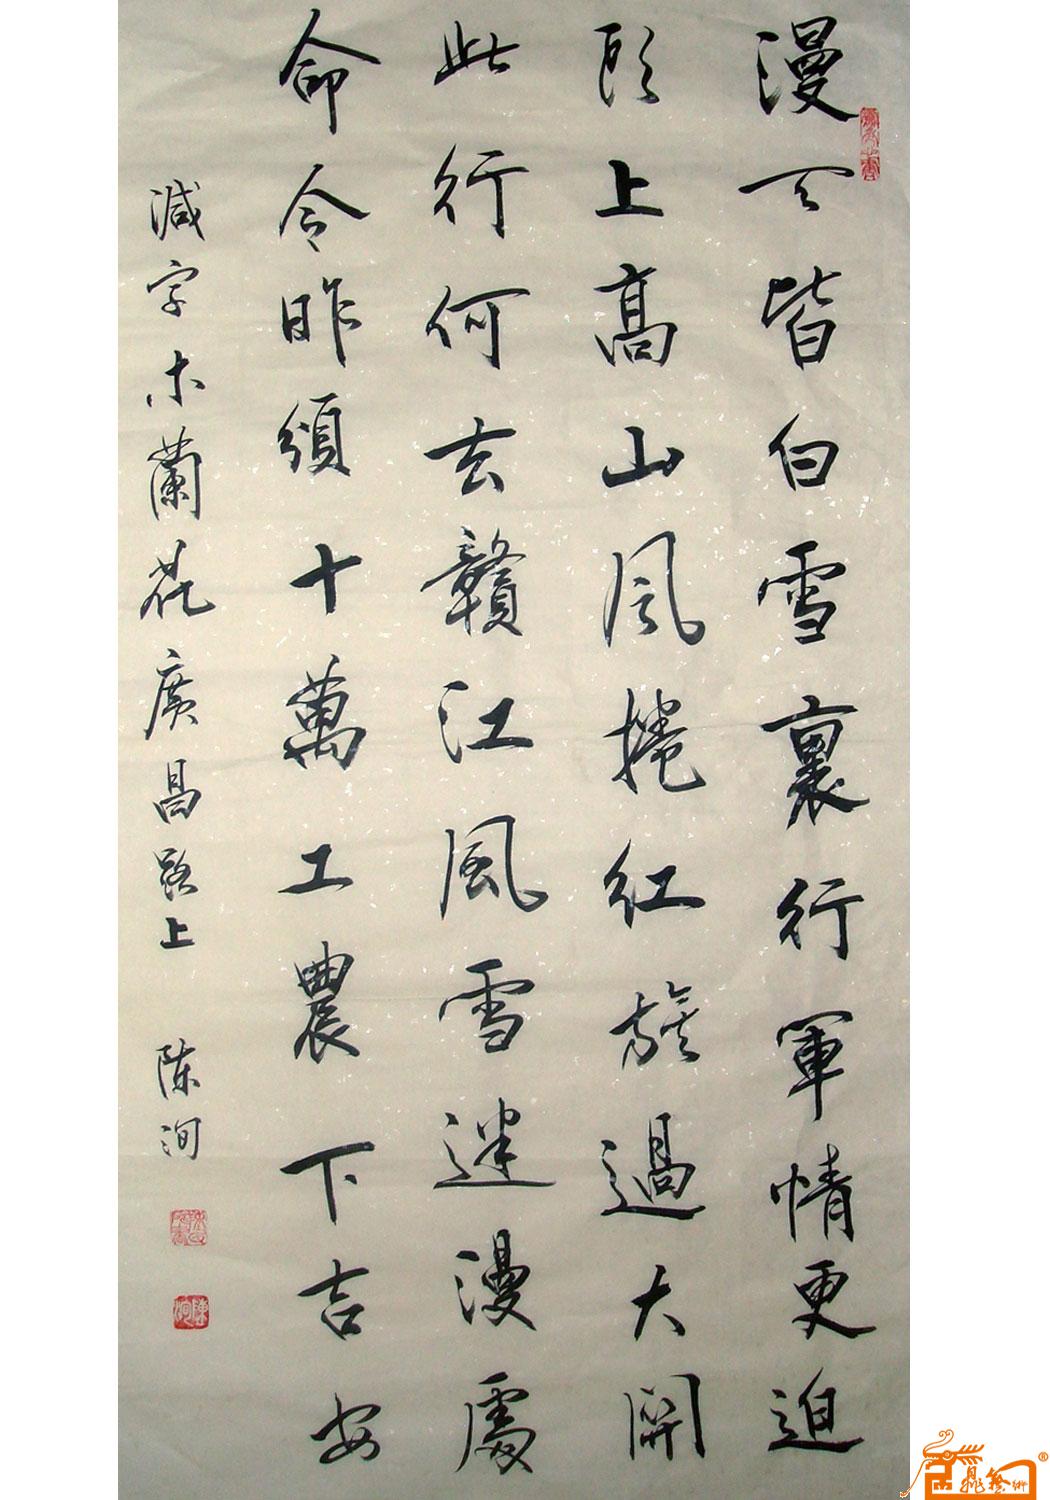 漫天皆白雪裏行軍情更迫
頭上高山风捲紅旗過大關
此行何去贛江風雪迷漫處
命令昨頒十萬工農下吉安
減字木蘭花廣昌路上 陈洵